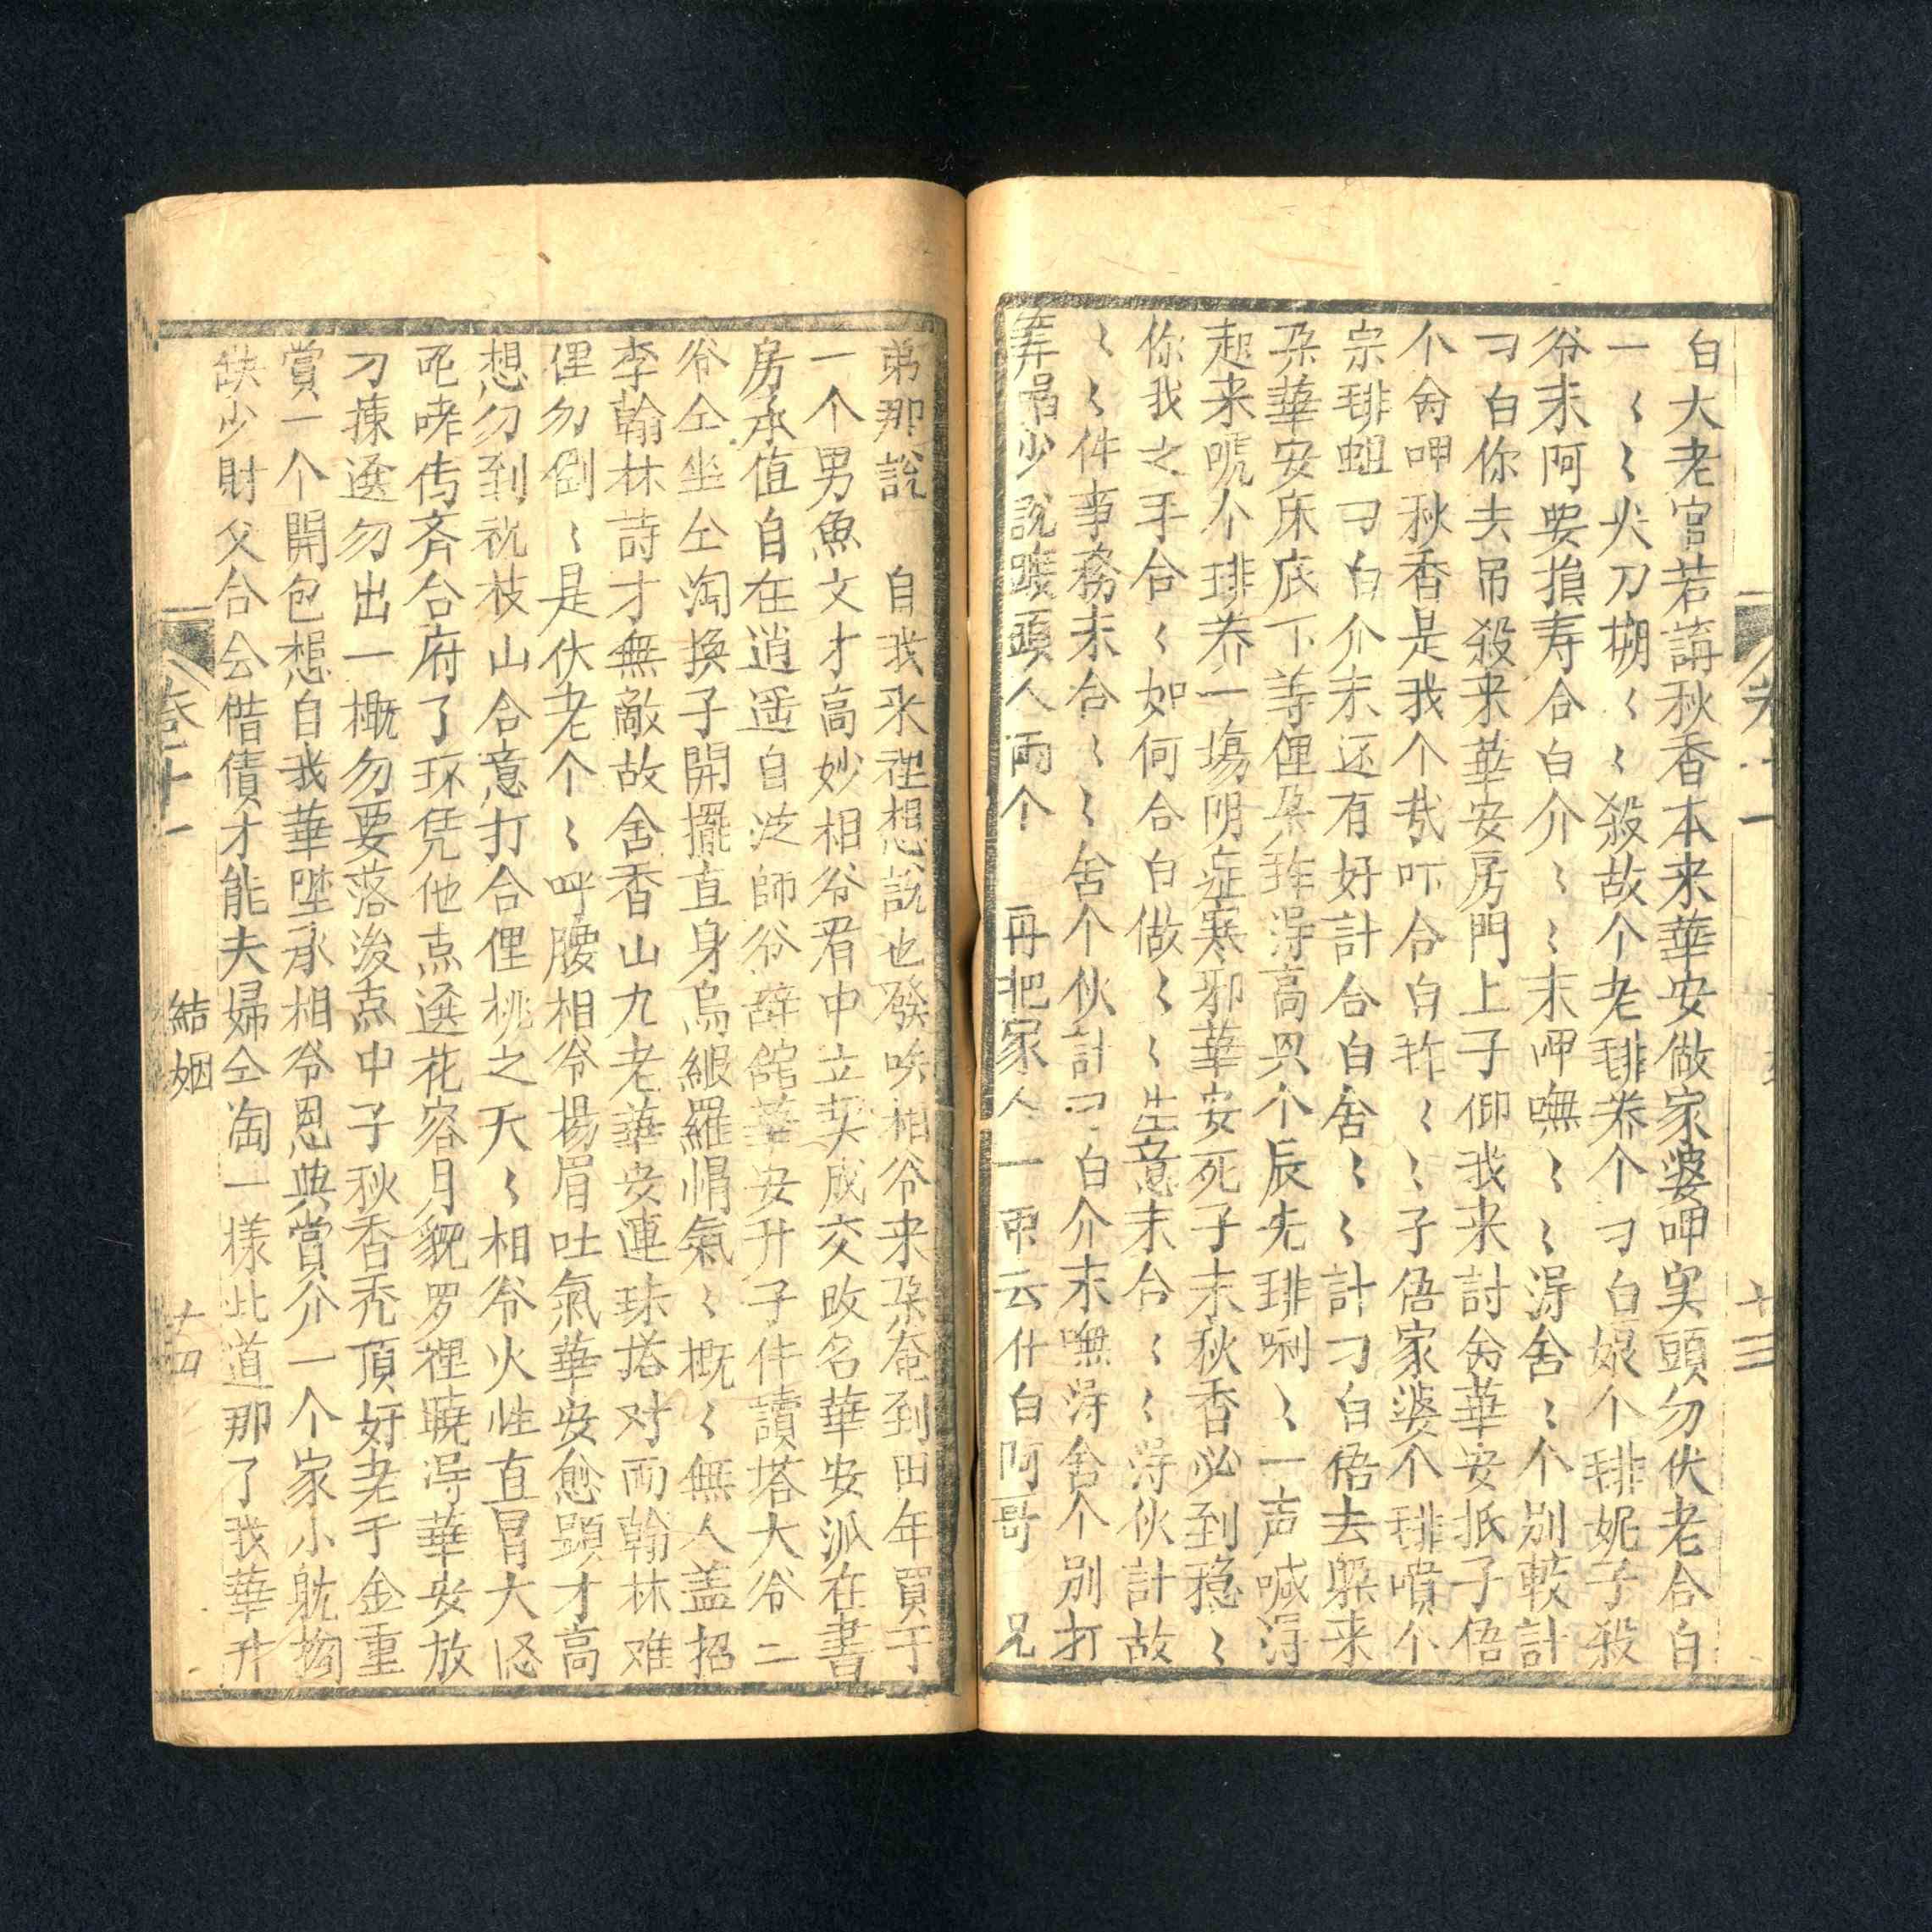 白大老官若論秋香本来華安做家婆呷実頭勿伏老合白
一〻〻尖刀搠〻〻殺故个老琲养个刁白娘个琲妮子殺
爷末阿要損寿合白介〻〻末呷嘸〻〻淂舍〻个别較計
刁白你去吊殺来華安房門上子仰我来討舍華安抵子俉
个舍呷秋香是我个㦲吓合白㧸〻〻子俉家婆个琲噴个
宗琲蛆刁白介末还有好計合白舍〻〻計刁白俉去躱来
朵華安床底下等俚朵㧸淂高具个辰光琲唎〻一声喊淂
起来唬个琲养一塲阴症寒邪華安死子末秋香必到穏〻
你我之手合〻如何合白做〻〻生意末合〻〻淂伙計故
〻〻件事務末合〻〻舍个伙計刁白介末嘸淂舍个别打
弄吊少說躱頭人両个　再把家人一一云什白阿哥　兄
弟那說　自我来裡想說也發唉相爷来朵菴到田年買于
一个男魚文才高妙相爷看中立契成交改名華安派在書
房承值自在逍遥自从師爷辞舘華安升子伴讀塔大爷二
爷仝坐仝淘換子開擺直身烏緞羅帽氣〻概〻無人盖招
李翰林詩才無敵故舍香山九老華安連珠搭对両翰林难
俚勿倒〻是伏老个〻呼腰相爷揚眉吐氣華安愈顕才高
想勿到祝枝山合意打合俚桃之夭〻相爷火性直冒大怒
咤哮传斉合府了环凭他点選花容月貌罗裡曉淂華安放
刁揀選勿出一概勿要落浚点中子秋香秃頂好老千金重
賞一个開包想自我華陞承相爷恩典賞介一个家小肮㨫
缺少財父合会借債才能夫婦仝淘一樣此道那了我華升
卷十一
結姻
十四
卷十一
十三